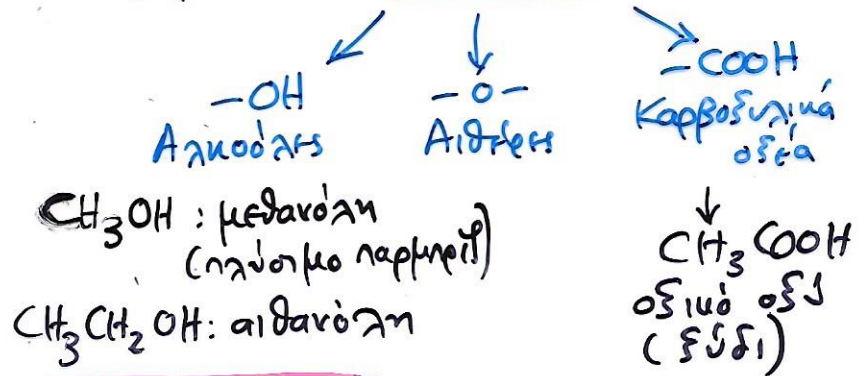 -OH
Αλκοόλες
-O-
Αιθέρες
-COOH
Καρβοξυλικά
οξέα
CH₃OH : μεθανόλη
(πλύσιμο παρμπρίζ)
CH₃CH₂OH: αιθανόλη
CH₃COOH
οξικό οξύ
(ξύδι)